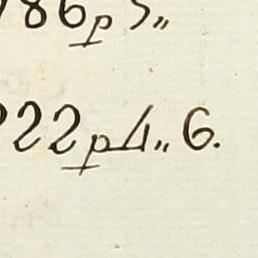 786 p 5„
222 p 4„ 6.